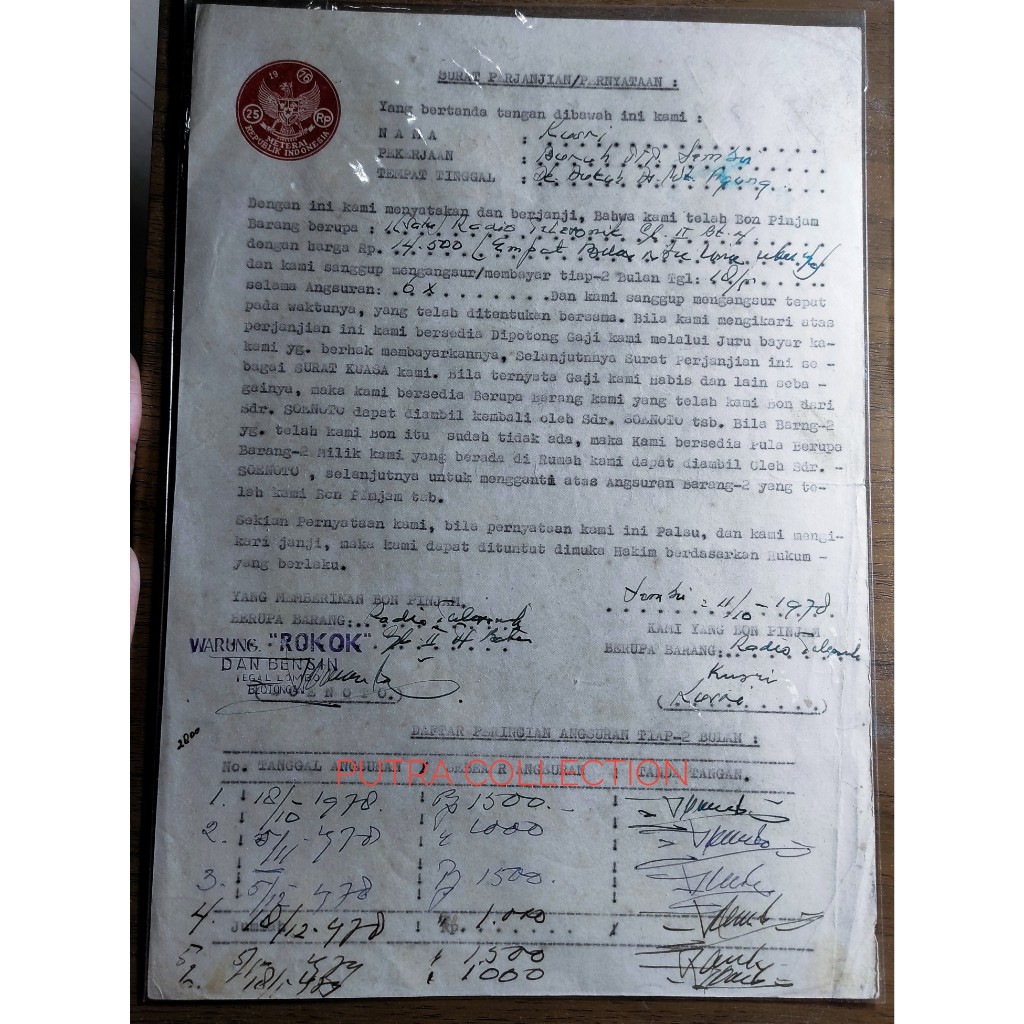 SURAT PERJANJIAN/PERNYATAAN :
19 76
25 RP
METERAI
REPUBLIK INDONESIA
Yang bertanda tangan dibawah ini kami :
N A M A : Kusri
PEKERJAAN : Buruh
TEMPAT TINGGAL : Agung
Dengan ini kami menyatakan dan berjanji, Bahwa kami telah Bon Pinjam
Barang berupa : 1 (Satu) Radio II Bt. 4
dengan harga Rp. 14.500 (Empat Belas ribu lima
dan kami sanggup mengangsur/membayar tiap-2 Bulan Tgl:
selama Angsuran: 6 x . . . . . . .Dan kami sanggup mengangsur tepat
pada waktunya, yang telah ditentukan bersama. Bila kami mengikari atas
perjanjian ini kami bersedia Dipotong Gaji kami melalui Juru bayar ka-
kami yg. berhak membayarkannya, Selanjutnnya Surat Perjanjian ini se -
bagai SURAT KUASA kami. Bila ternyata Gaji kami Habis dan lain seba -
gainya, maka kami bersedia Berupa Barang kami yang telah kami Bon dari
Sdr. SOENOTO dapat diambil kembali oleh Sdr. SOENOTO tsb. Bila Barng-2
yg. telah kami Bon itu sudah tidak ada, maka Kami bersedia Pula Berupa
Barang-2 Milik kami yang berada di Rumah kami dapat diambil Oleh Sdr. -
SOENOTO , selanjutnya untuk mengganti atas Angsuran Barang-2 yang te-
lah kami Bon Pinjam tsb.
Sekian Pernyataan kami, bila pernyataan kami ini Palsu, dan kami mengi-
kari janji, maka kami dapat dituntut dimuka Hakim berdasarkan Hukum -
yang berlaku.
11/10-1978
YANG MEMBERIKAN BON PINJAM
BERUPA BARANG: Radio
KAMI YANG BON PINJAM
BERUPA BARANG: Radio
WARUNG "ROKOK"
DAN BENSIN
(SOENOTO.)
Kusri
(Kusri)
2800
DAFTAR PERINCIAN ANGSURAN TIAP-2 BULAN :
No. TANGGAL ANGSURAN BESEAR ANGSURAN TANDA TANGAN.
PUTRA COLLECTION
1. 18/10-1978. Rp 1500.-
2. 5/11-978 " 1000
3. 5/12-978 Rp 1500.
4. 18/12-978 " 1.000
Jumlah
5. 979 " 1.500
6. 18/1-979 " 1000